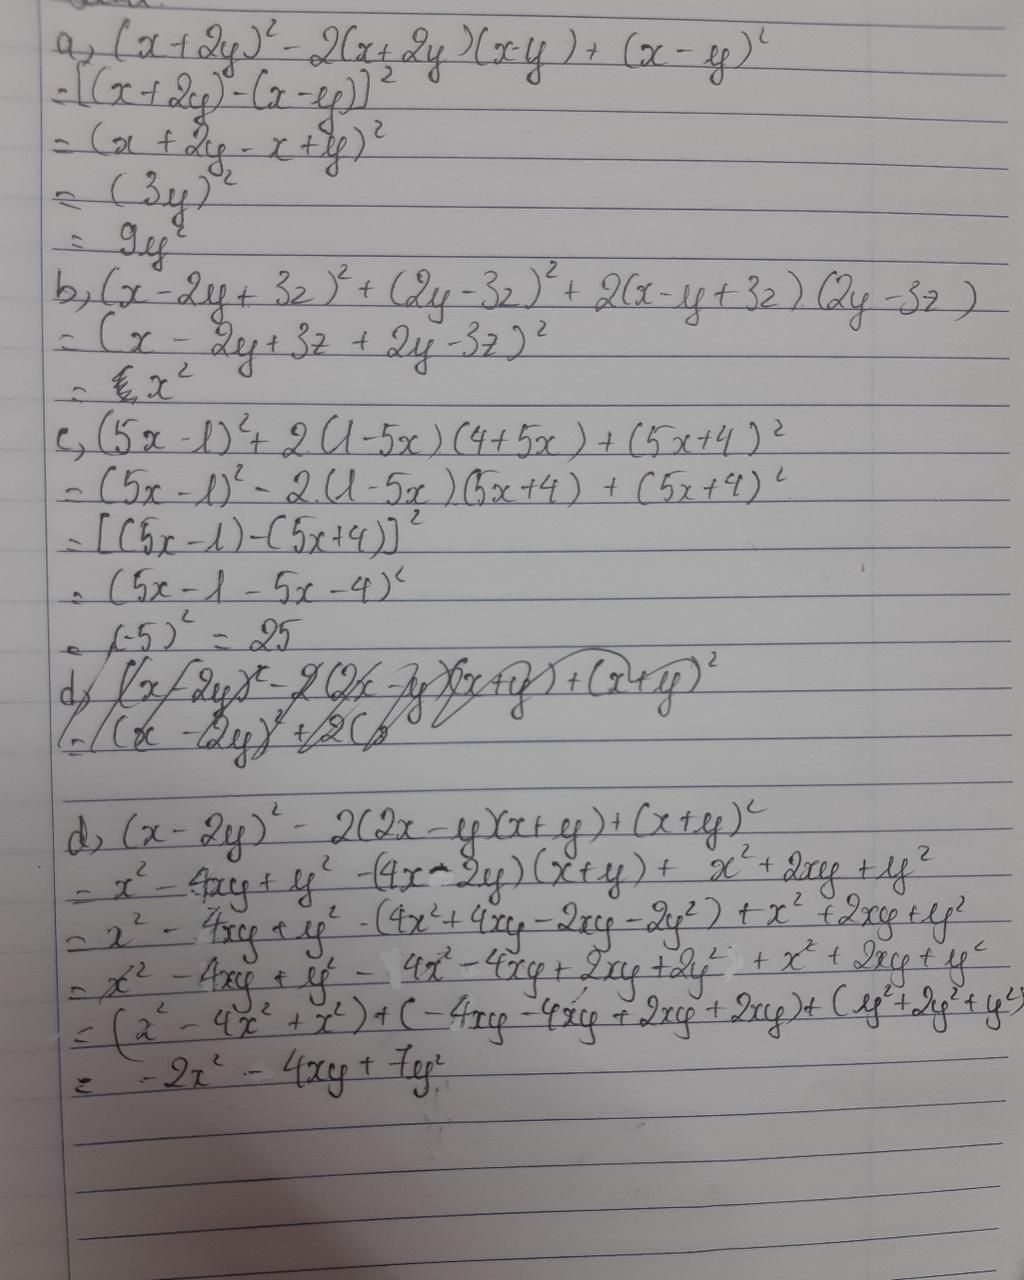 a, (x + 2y)² - 2(x + 2y)(x-y) + (x - y)²
= [(x + 2y) - (x - y)]²
= (x + 2y - x + y)²
= (3y)²
= 9y²
b, (x - 2y + 3z)² + (2y - 3z)² + 2(x - y + 3z).(2y - 3z)
= (x - 2y + 3z + 2y - 3z)²
= x²
c, (5x - 1)² + 2.(1 - 5x)(4 + 5x) + (5x + 4)²
= (5x - 1)² - 2.(1 - 5x)(5x + 4) + (5x + 4)²
= [(5x - 1) - (5x + 4)]²
= (5x - 1 - 5x - 4)²
= (-5)² = 25
d, (x - 2y)² - 2(2x - y)(x + y) + (x + y)²
= (x - 2y)² + 2(
d, (x - 2y)² - 2(2x - y)(x + y) + (x + y)²
= x² - 4xy + y² - (4x - 2y)(x + y) + x² + 2xy + y²
= x² - 4xy + y² - (4x² + 4xy - 2xy - 2y²) + x² + 2xy + y²
= x² - 4xy + y² - 4x² - 4xy + 2xy + 2y² + x² + 2xy + y²
= (x² - 4x² + x²) + (- 4xy - 4xy + 2xy + 2xy) + (y² + 2y² + y²)
= - 2x² - 4xy + 7y²